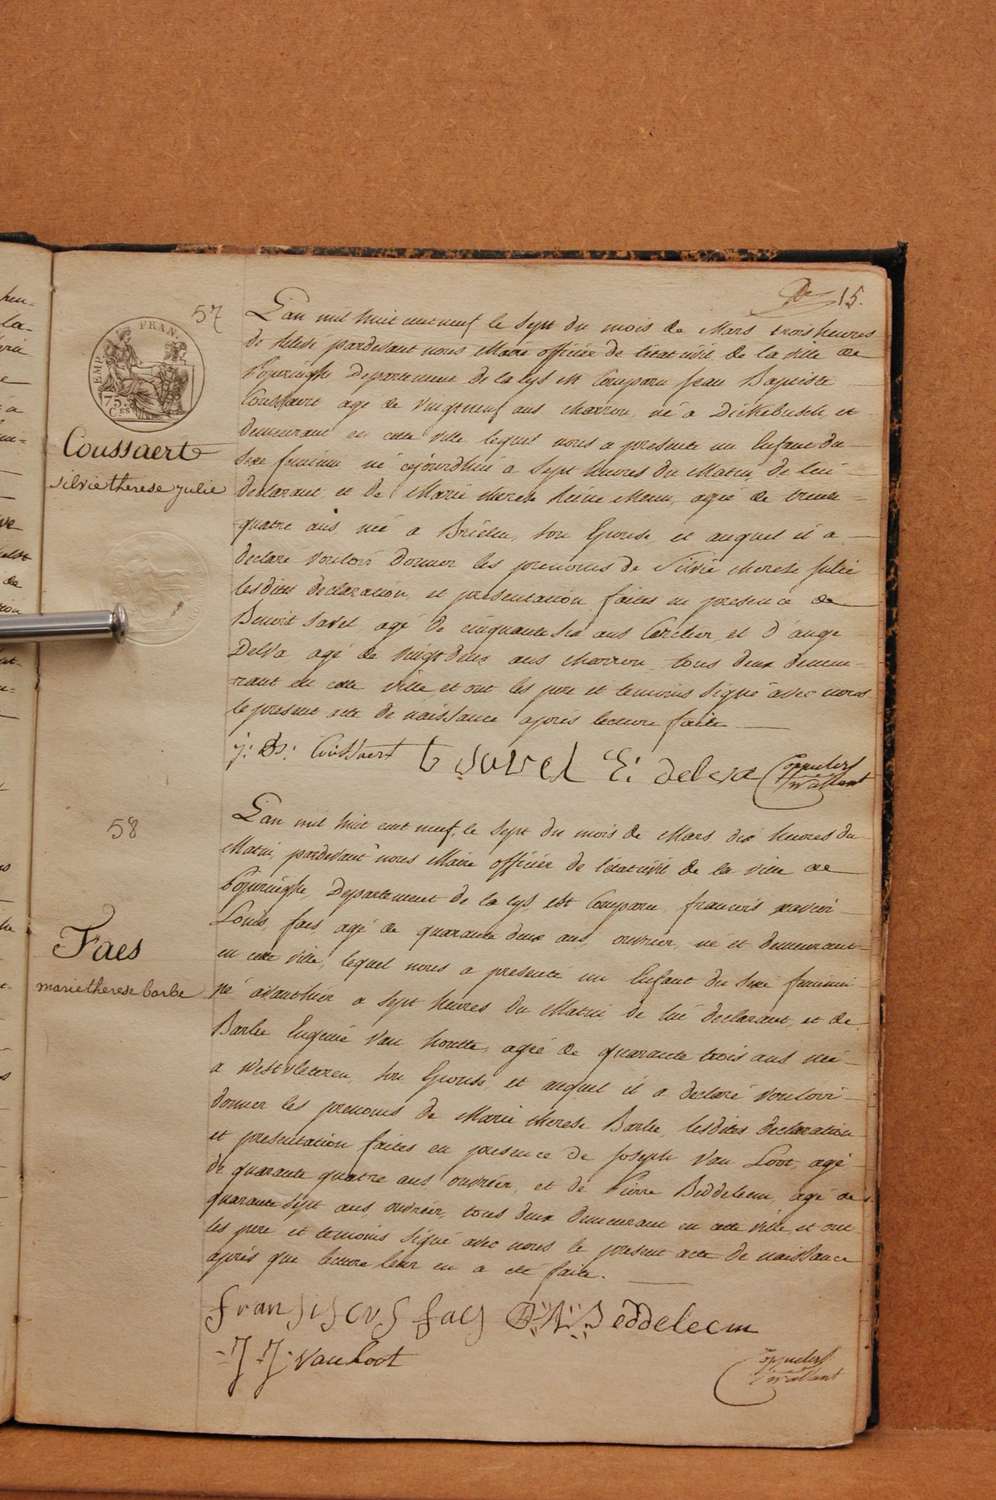 15.
57
L'an mil huit cent neuf le Sept du mois de Mars trois heures
de relevée pardevant nous Maire officier de l'etat civil de la ville de
Poperinghe departement de la Lys est Comparu Jean Baptiste
Coussaert agé de vingt neuf ans charron né a Dickebusch et
demeurant en cette ville lequel nous a presenté un Enfant du
Sexe feminin né cejourdhui a Sept heures du Matin de lui
declarant et de Marie therese heine Monu, agée de trente
quatre ans née a Brielen, son Epouse et auquel il a
declaré vouloir donner les prenoms de Silvie therese Julie
lesdites declaration et presentation faites en presence de
Benoit Savel agé de cinquante six ans Cordier et d'ange
Delva agé de vingt deux ans charron tous deux demeu-
rant en cette ville et ont les pere et temoins signé avec nous
le present acte de naissance après lecture faite
Coussaert
silvie therese julie
FRAN
EMP
75
j: B: Coussaert b savel E: delva
58
L'an mil huit cent neuf, le Sept du mois de Mars dix heures du
Matin, pardevant nous Maire officier de l'etat civil de la ville de
Poperinghe, departement de la Lys, est Comparu francois xavier
Louis, faes agé de quarante deux ans, ouvrier, né et demeurant
en cette ville, lequel nous a presenté un Enfant du Sexe feminin
né avanthier a Sept heures du Matin de lui declarant, et de
Barbe Eugenie Van houtte, agée de quarante trois ans née
a Westvleteren, son Epouse et auquel il a declaré vouloir
donner les prenoms de Marie therese Barbe, lesdites declaration
et presentation faites en presence de Joseph Van Loot, agé
de quarante quatre ans ouvrier, et de Pierre Beddeleem, agé de
quarante sept ans ouvrier, tous deux demeurant en cette ville, et ont
les pere et temoins signé avec nous le present acte de naissance
après que lecture leur en a été faite.
Faes
marie therese barbe
fransiscus faes Beddeleem
J J: vanloot